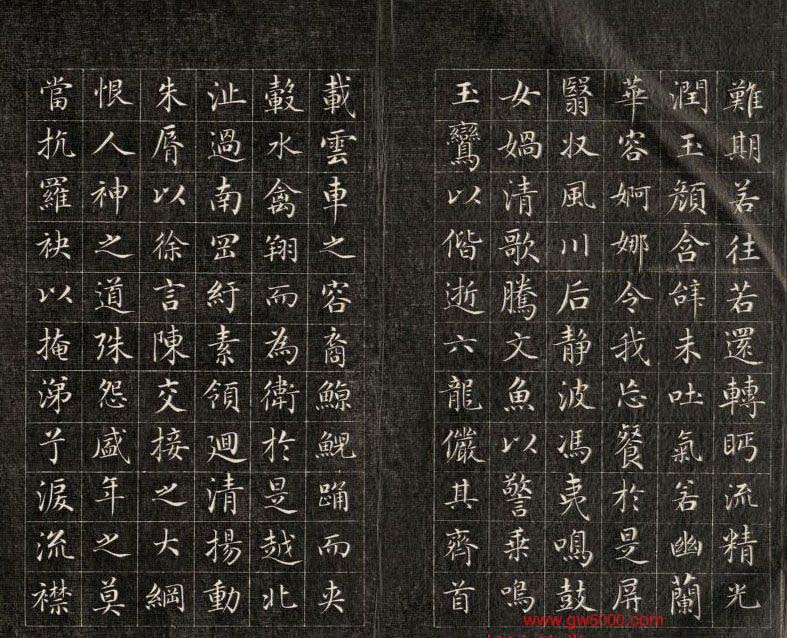 難期若往若還轉眄流精光
潤玉顏含辭未吐氣若幽蘭
華容婀娜令我忘餐於是屏
翳収風川后静波馮夷鳴鼓
女媧清歌騰文魚以警乗鳴
玉鸞以偕逝六龍儼其齊首
載雲車之容裔鯨鯢踊而夾
轂水禽翔而為衛於是越北
沚過南岡紆素領廻清揚動
朱脣以徐言陳交接之大綱
恨人神之道殊怨盛年之莫
當抗羅袂以掩涕兮淚流襟
www.gw5000.com